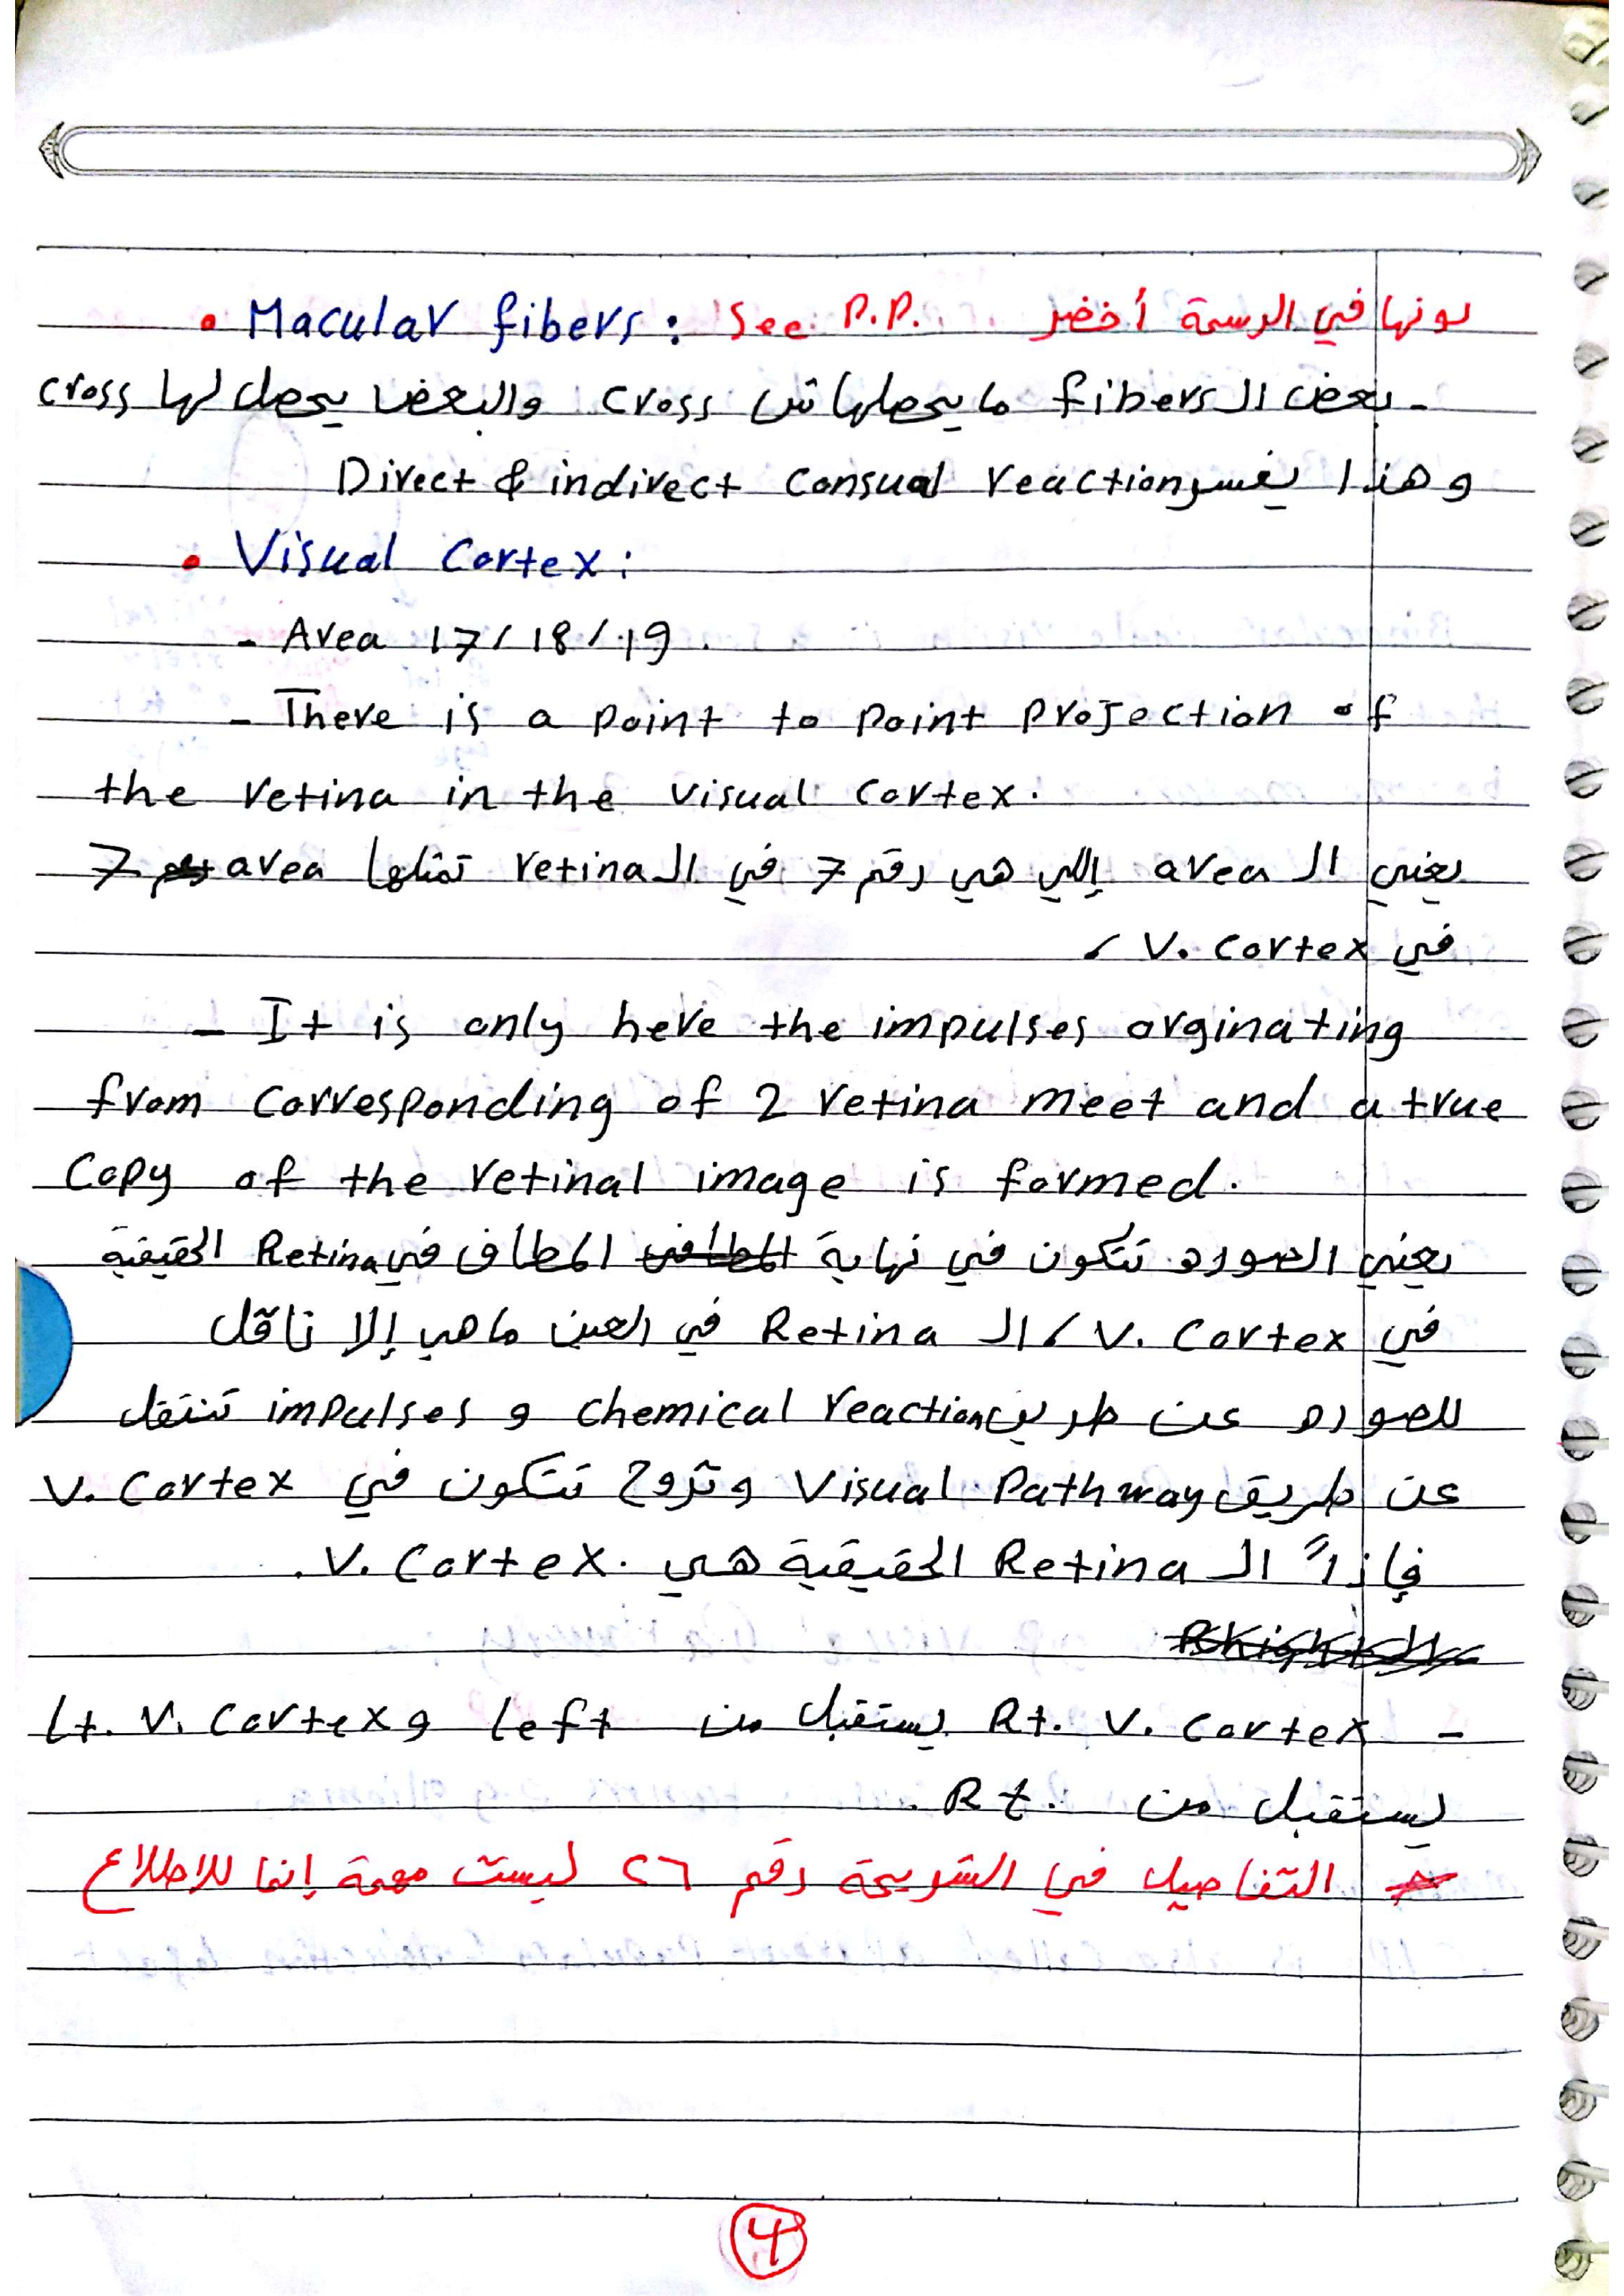 • Macular fibers: See P.P. لونها في الرسمة أخضر
- بعض الـ fibers ما يحصلهاش cross والبعض يحصل لها cross
وهذا يفسر Direct & indirect Consual reaction
• Visual Cortex:
- Area 17/18/19
- There is a point to point projection of
the retina in the visual cortex.
يعني الـ area إللي هي رقم 7 في الـ retina تمثلها area 7
في V. cortex ،
- It is only here the impulses orginating
from corresponding of 2 retina meet and a true
Copy of the retinal image is formed.
يعني الصوره تتكون في نهاية المطاف في Retina الحقيقية
في V. Cortex ، الـ Retina في العين ماهي إلا ناقل
للصوره عن طريق chemical reaction و impulses تنتقل
عن طريق Visual Pathway وتروح تتكون في V. Cortex
فإذاً الـ Retina الحقيقية هي V. Cortex.
- Rt. V. cortex يستقبل من left و Lt. V. cortex
يستقبل من Rt.
التفاصيل في الشريحة رقم ٢٦ ليست مهمة إنما للاطلاع
4